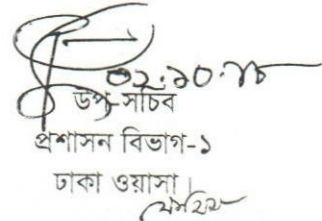 ০২.১০.১৮
উপ-সচিব
প্রশাসন বিভাগ-১
ঢাকা ওয়াসা।